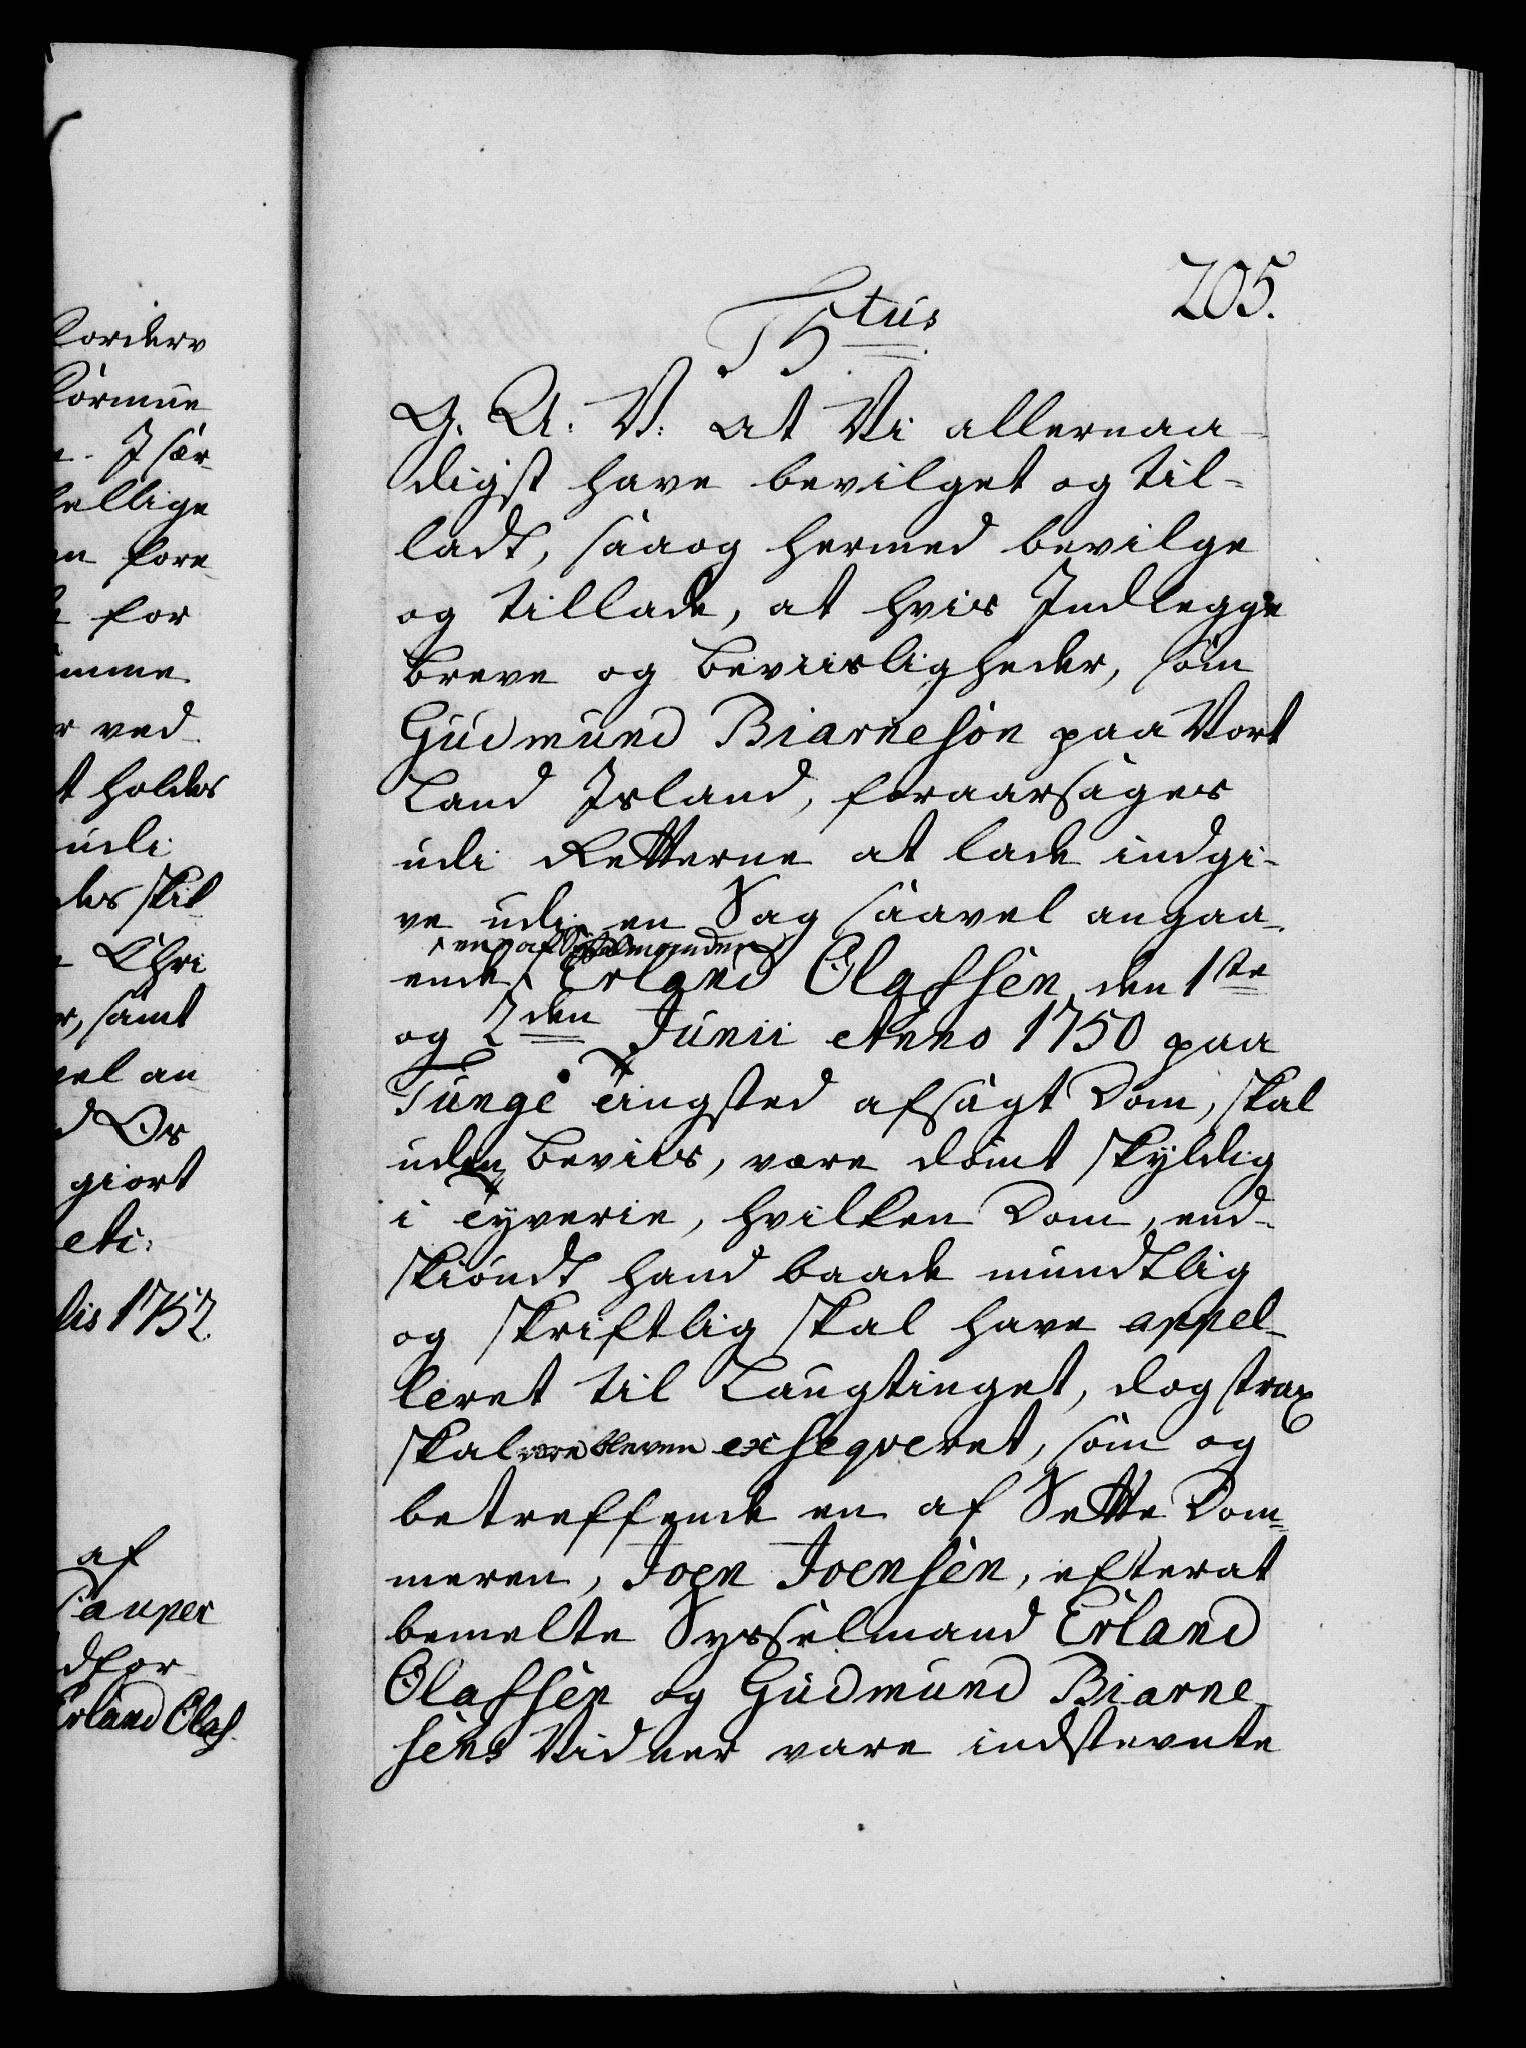 205.
F5tus
G. A. V: at Vi allernaa-
digst have bevilget og til-
ladt, saaog hermed bevilge
og tillade, at hvis Indlegge
breve og beviisligheder, som
Gudmund Biarnesön paa Vort
Land Island, foraarsages
udi Retterne at lade indgi-
ve udi en Sag saavel angaa-
en af Sysselmanden
ende Erland Olafsen den 1ste
og 2den Junii Anno 1750 paa
Tunge Tingsted afsagt Dom, skal
uden beviis, være dømt skyldig
i Tyverie, hvilken Dom, end-
skiöndt hand baade mundtlig
og skriftlig skal have appel-
leret til Laugtinget, dog strax
skal være bleven exseqveret, som og
betreffende en af Sette Dom-
meren, Joen Joensen, efterat
bemelte Sysselmand Erland
Olafsen og Gudmund Biarne
sens Vidner vare indstevnte
Forderv
Formue
n. Især-
hellige
en fore-
for
imme
r ved
t holdes
udi
des skil-
Chri
r, samt
vel an
d Os
giort
etc:
lis 1752.
af
Pauper
dfor
Erland Olaf-